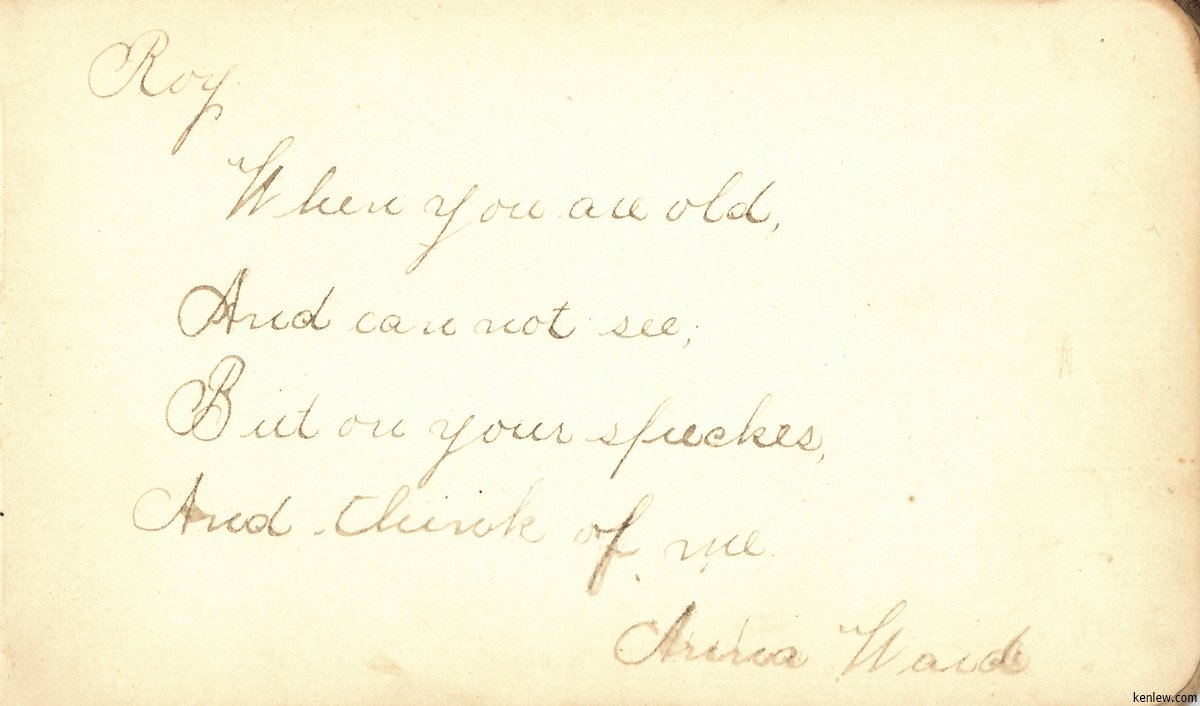 Roy
When you are old,
And can not see,
But on your speckes,
And think of me
Anna Ward
kenlew.com